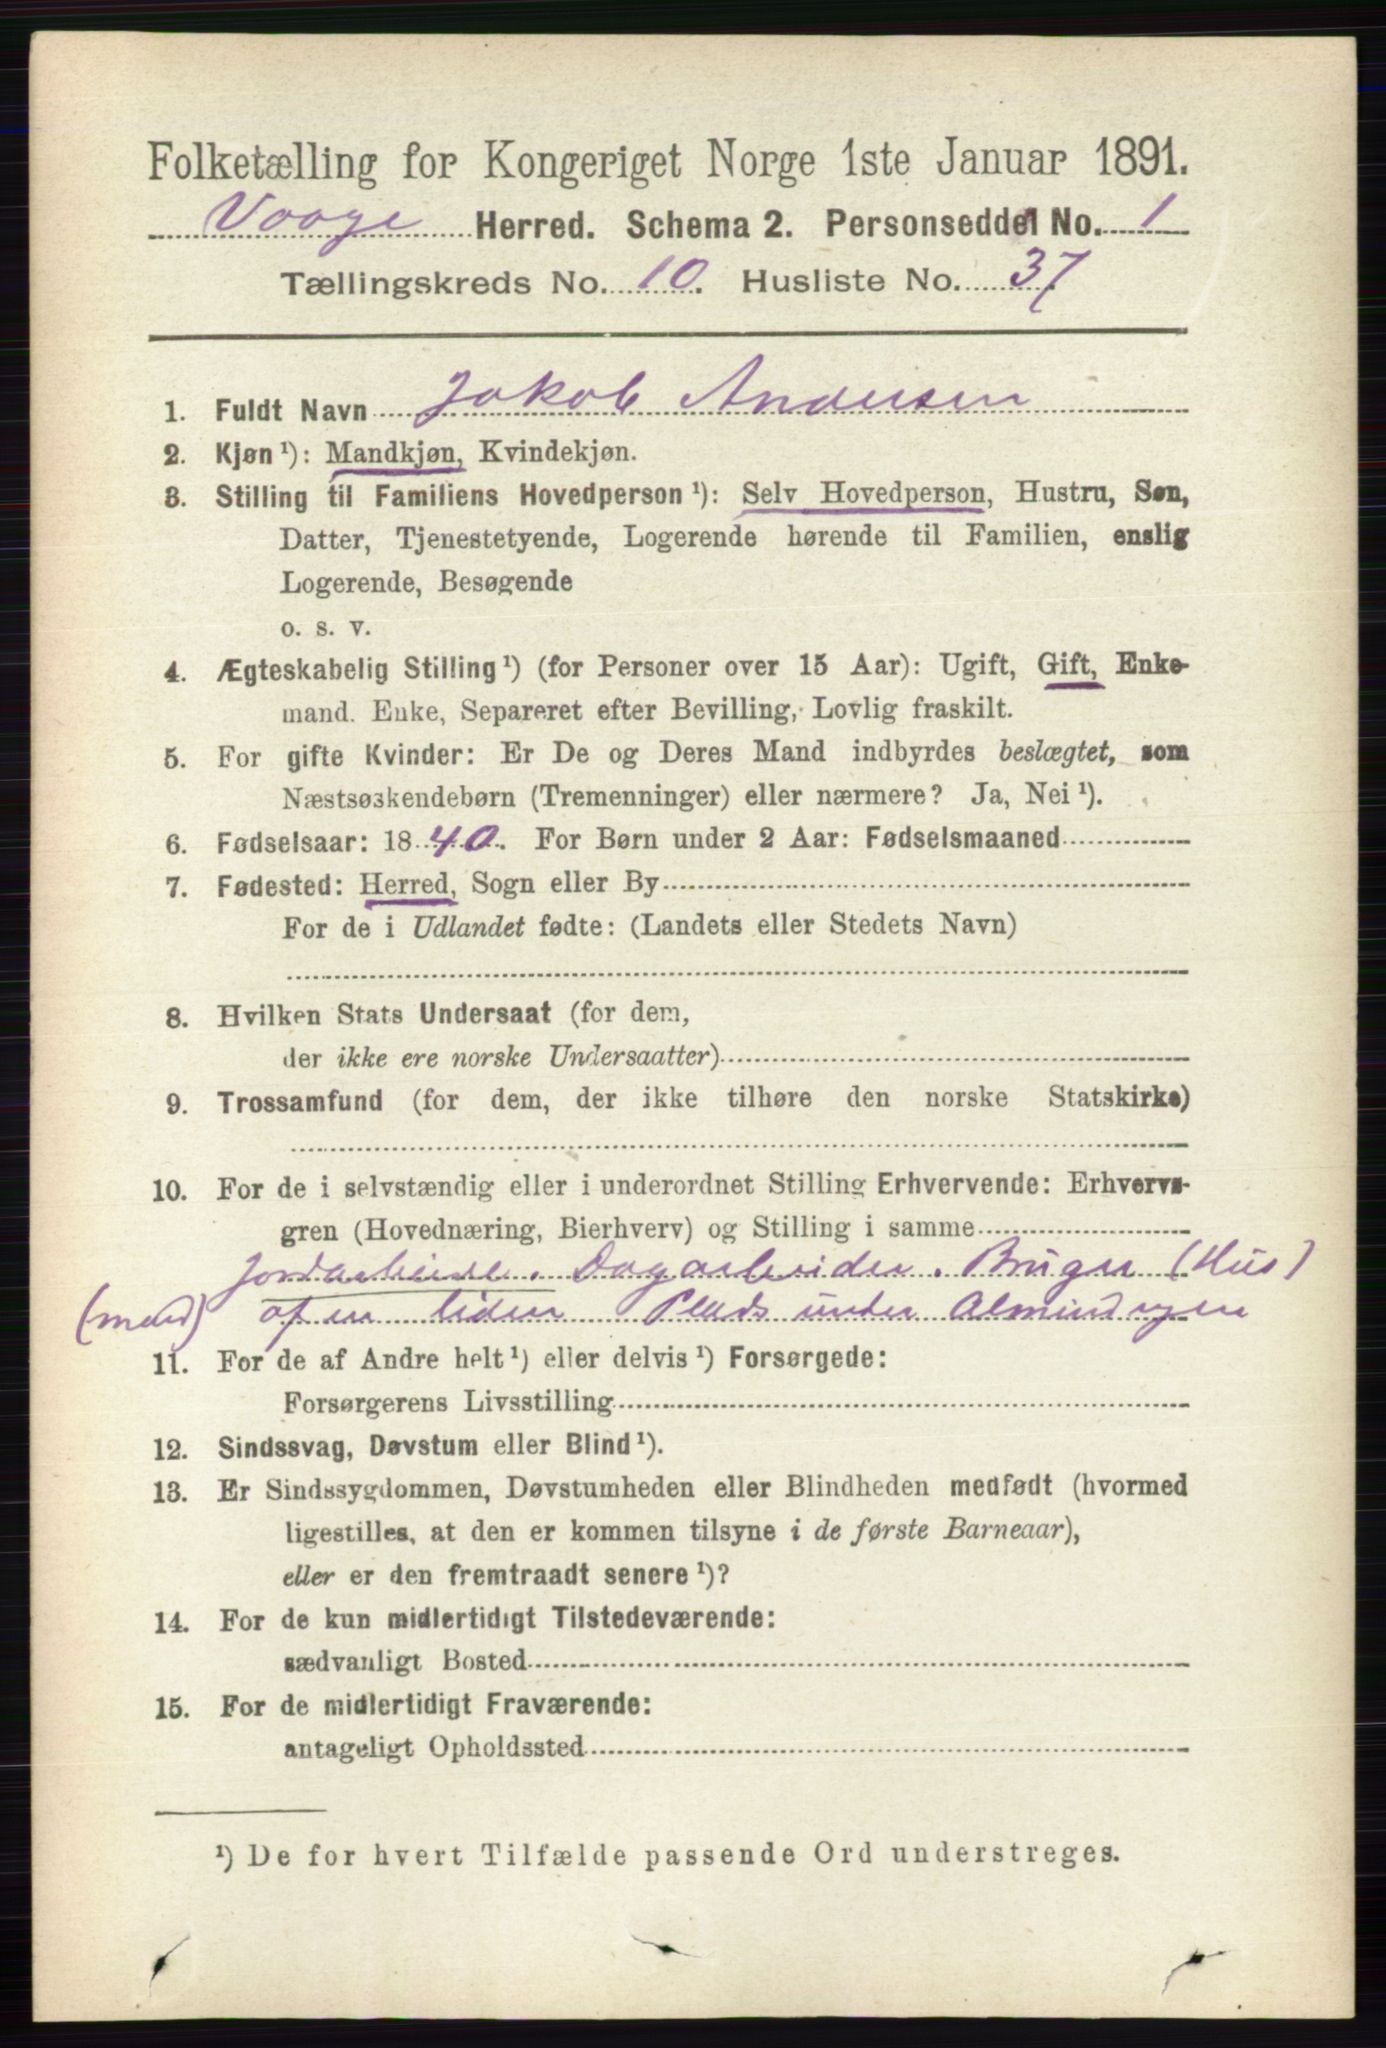 Folketælling for Kongeriget Norge 1ste Januar 1891.
Vaage Herred. Schema 2. Personseddel No. 1
Tællingskreds No. 10. Husliste No. 37.
1. Fuldt Navn Jakob Andersen
2. Kjøn ¹): Mandkjøn, Kvindekjøn.
3. Stilling til Familiens Hovedperson ¹): Selv Hovedperson, Hustru, Søn,
Datter, Tjenestetyende, Logerende hørende til Familien, enslig
Logerende, Besøgende
o. s. v.
4. Ægteskabelig Stilling ¹) (for Personer over 15 Aar): Ugift, Gift, Enke-
mand. Enke, Separeret efter Bevilling, Lovlig fraskilt.
5. For gifte Kvinder: Er De og Deres Mand indbyrdes beslægtet, som
Næstsøskendebørn (Tremenninger) eller nærmere? Ja, Nei ¹).
6. Fødselsaar: 1840. For Børn under 2 Aar: Fødselsmaaned
7. Fødested: Herred, Sogn eller By
For de i Udlandet fødte: (Landets eller Stedets Navn)
8. Hvilken Stats Undersaat (for dem,
der ikke ere norske Undersaatter)
9. Trossamfund (for dem, der ikke tilhøre den norske Statskirke)
10. For de i selvstændig eller i underordnet Stilling Erhvervende: Erhvervs-
gren (Hovednæring, Bierhverv) og Stilling i samme
Jordarbeide. Dagarbeider. Bruger (Hus)
(mand) af en liden Plads under Almindingen
11. For de af Andre helt ¹) eller delvis ¹) Forsørgede:
Forsørgerens Livsstilling
12. Sindssvag, Døvstum eller Blind ¹).
13. Er Sindssygdommen, Døvstumheden eller Blindheden medfødt (hvormed
ligestilles, at den er kommen tilsyne i de første Barneaar),
eller er den fremtraadt senere ¹)?
14. For de kun midlertidigt Tilstedeværende:
sædvanligt Bosted
15. For de midlertidigt Fraværende:
antageligt Opholdssted
¹) De for hvert Tilfælde passende Ord understreges.